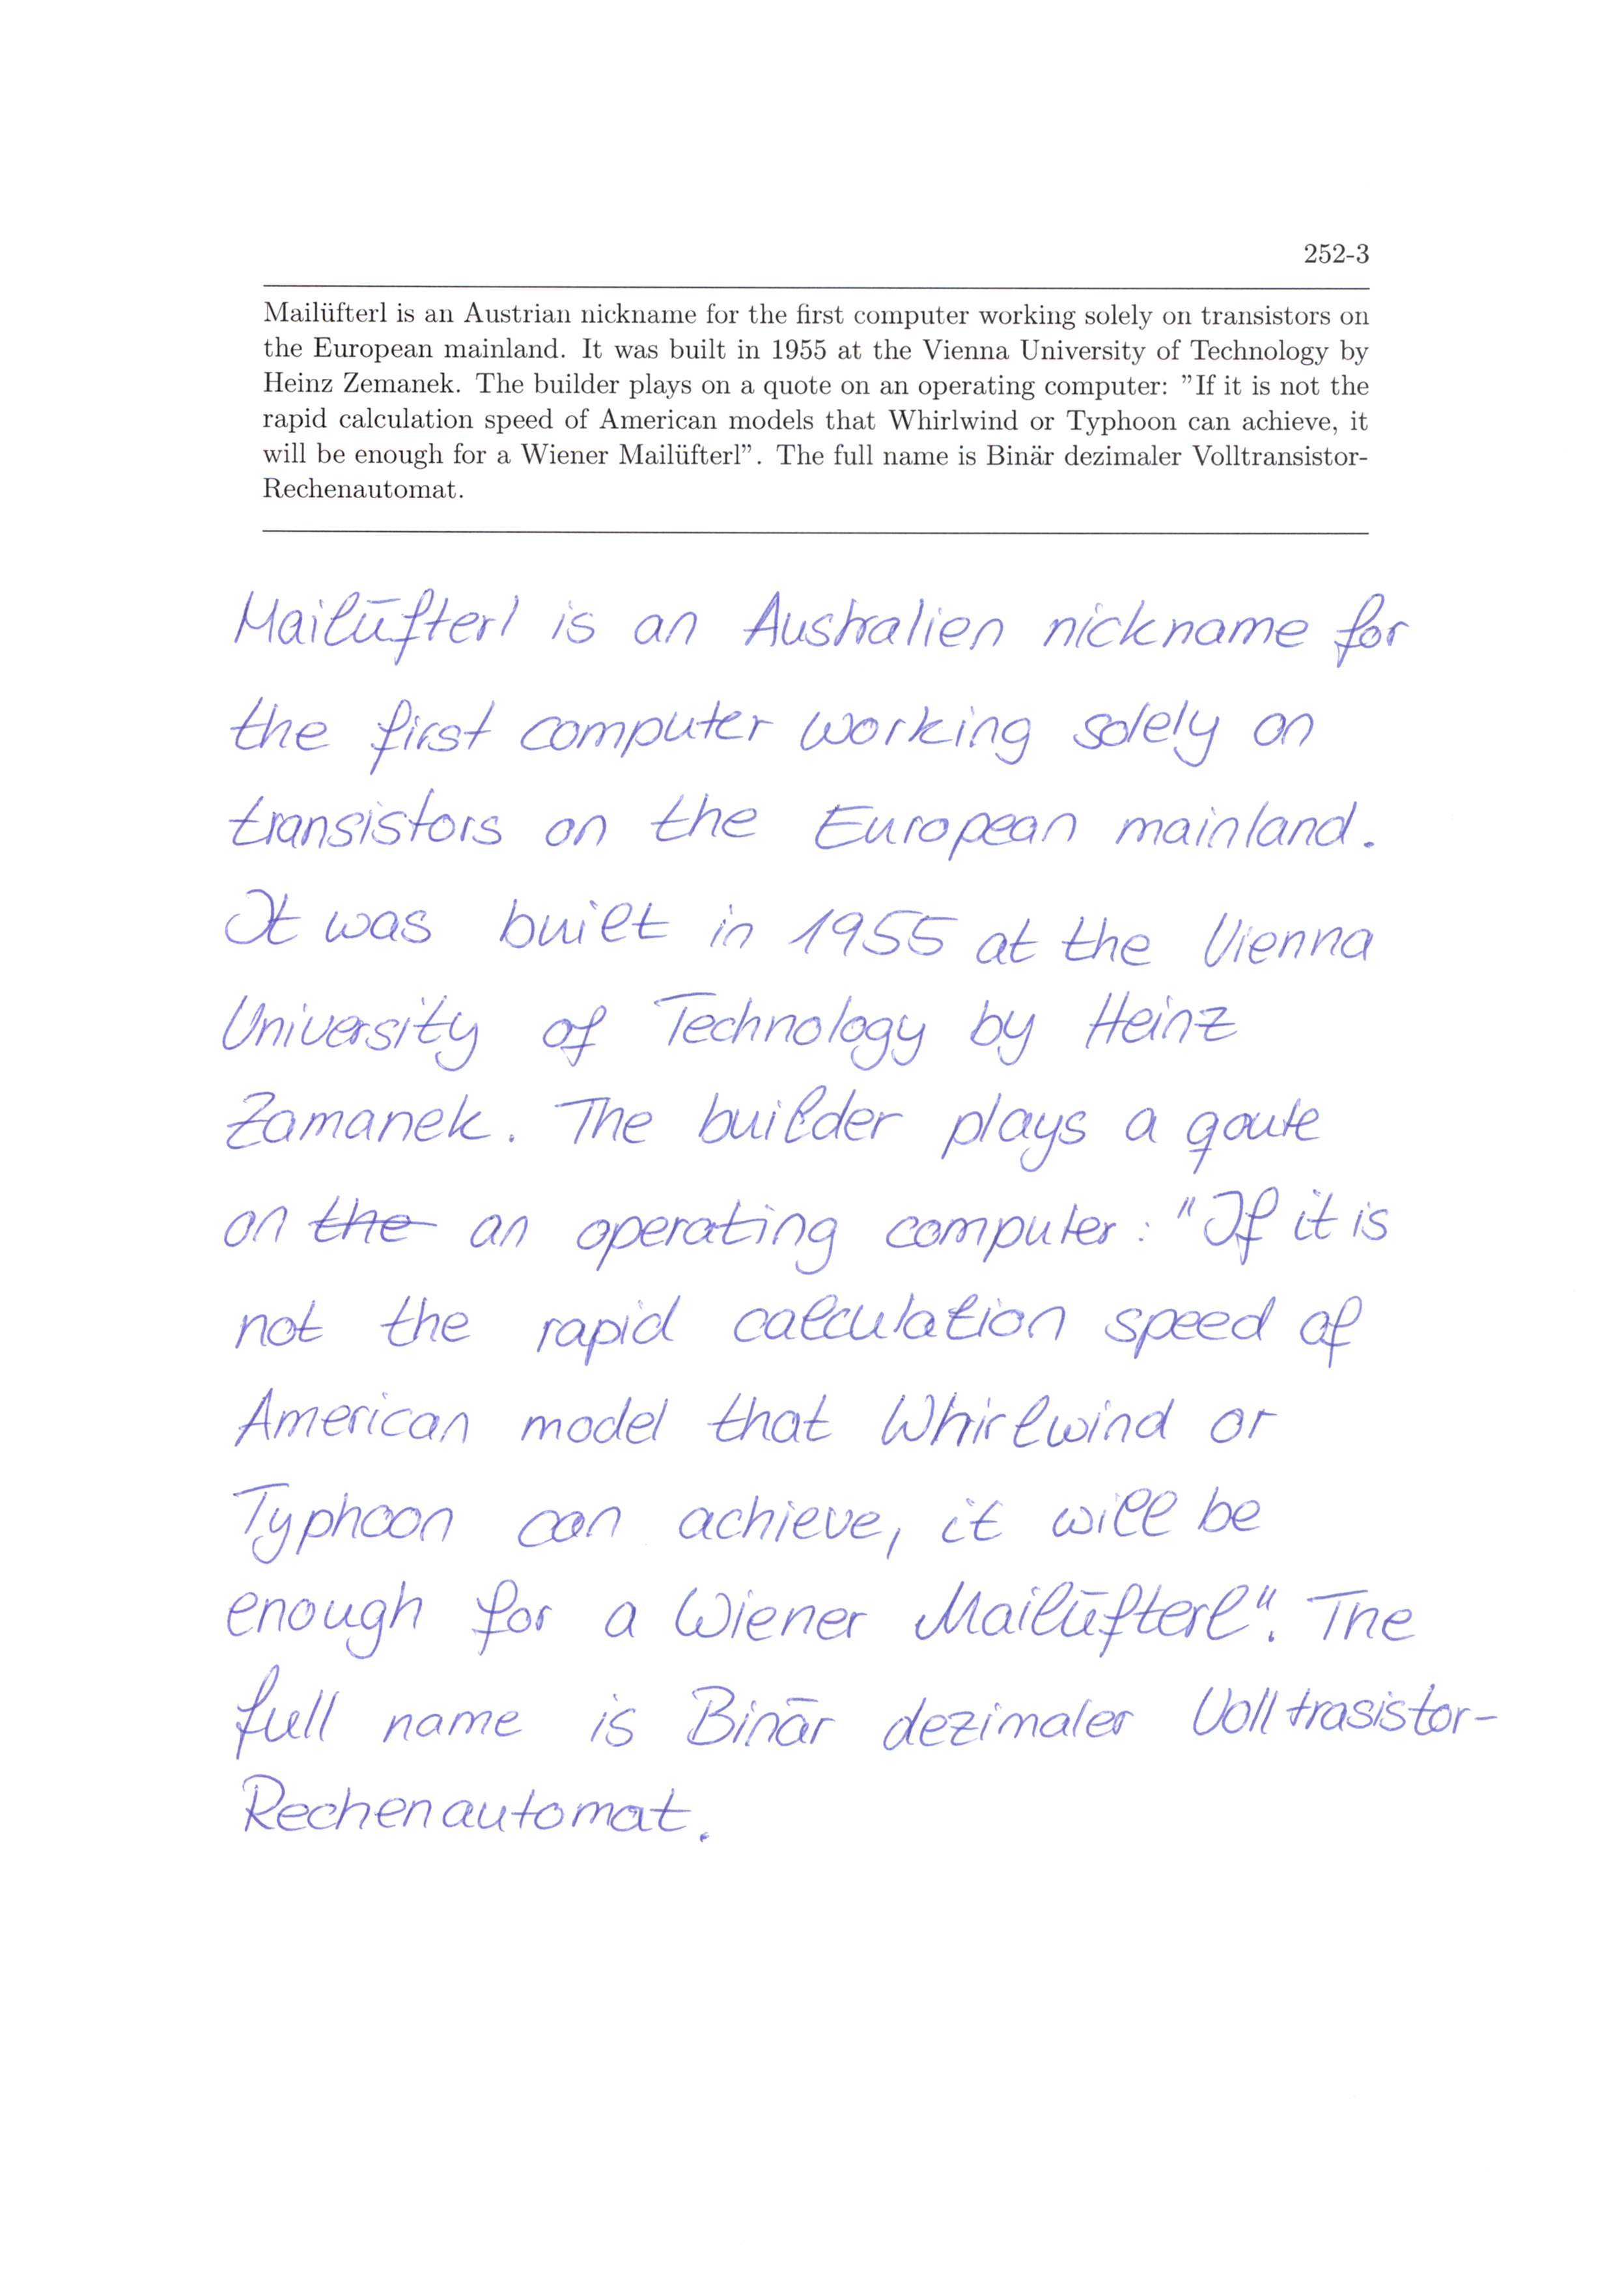 252-3
Mailüfterl is an Austrian nickname for the first computer working solely on transistors on
the European mainland. It was built in 1955 at the Vienna University of Technology by
Heinz Zemanek. The builder plays on a quote on an operating computer: ”If it is not the
rapid calculation speed of American models that Whirlwind or Typhoon can achieve, it
will be enough for a Wiener Mailüfterl”. The full name is Binär dezimaler Volltransistor-
Rechenautomat.
Mailüfterl is an Australien nickname for
the first computer working solely on
transistors on the European mainland.
It was built in 1955 at the Vienna
University of Technology by Heinz
Zamanek. The builder plays a qoute
on the an operating computer: "If it is
not the rapid calculation speed of
American model that Whirlwind or
Typhoon can achieve, it will be
enough for a Wiener Mailüfterl". The
full name is Binär dezimaler Volltrasistor-
Rechenautomat.